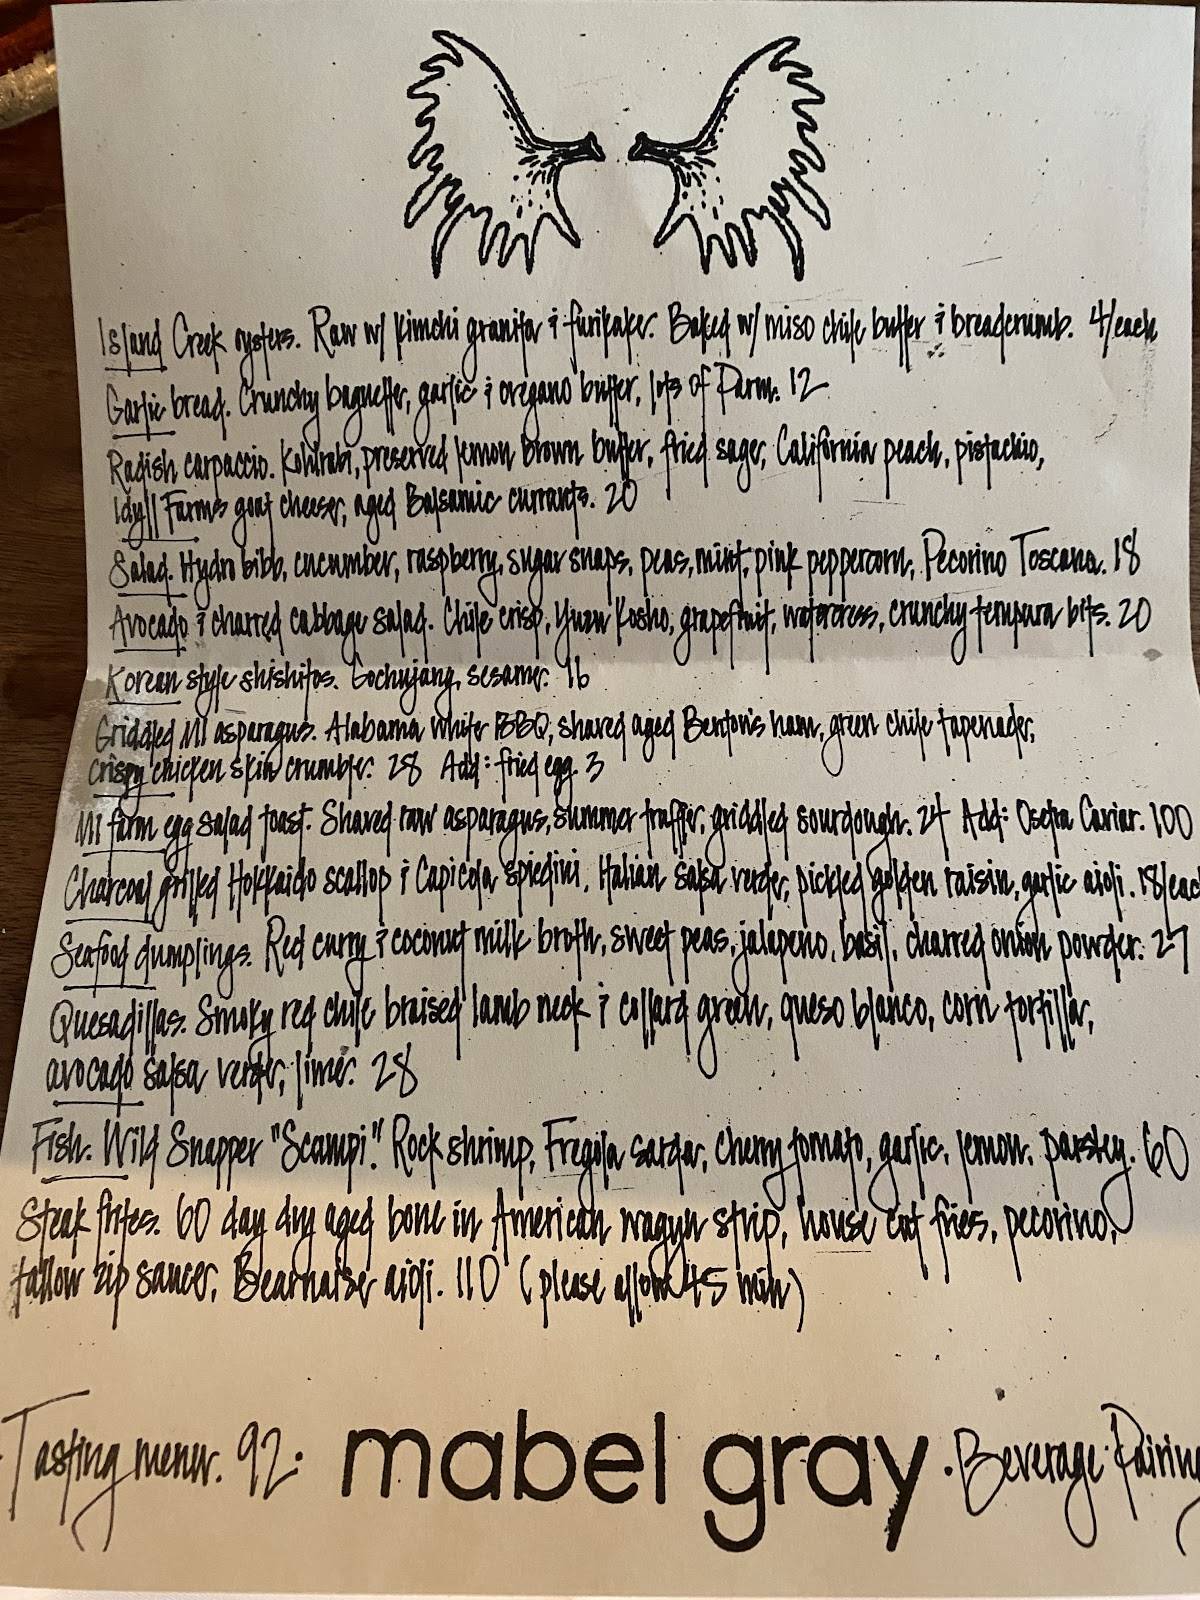 Island Creek oysters. Raw w/ kimchi granita & furikake. Baked w/ miso chile butter & breadcrumb. 4/each
Garlic bread. Crunchy baguette, garlic & oregano butter, lots of Parm. 12
Radish carpaccio. Kohlrabi, preserved lemon brown butter, fried sage, California peach, pistachio,
Idyll Farms goat cheese, aged Balsamic currants. 20
Salad. Hydro bibb, cucumber, raspberry, sugar snaps, peas, mint, pink peppercorn, Pecorino Toscana. 18
Avocado & charred cabbage salad. Chile crisp, Yuzu Kosho, grapefruit, watercress, crunchy tempura bits. 20
Korean style shishitos. Gochujang, sesame. 16
Griddled MI asparagus. Alabama white BBQ, shaved aged Benton's ham, green chile tapenade,
crispy chicken skin crumble. 28 Add: fried egg 3
MI farm egg salad toast. Shaved raw asparagus, summer truffle, griddled sourdough. 24 Add: Osetra Caviar. 100
Charcoal grilled Hokkaido scallop & Capicola spiedini, Italian salsa verde, pickled golden raisin, garlic aioli. 18/eac
Seafood dumplings. Red curry & coconut milk broth, sweet peas, jalapeno, basil, charred onion powder. 27
Quesadillas. Smoky red chile braised lamb neck & collard green, queso blanco, corn tortilla,
avocado salsa verde, lime. 28
Fish. Wild Snapper "Scampi". Rock shrimp, Fregola sarda, cherry tomato, garlic, lemon, parsley. 60
Steak frites. 60 day dry aged bone in American wagyu strip, house cut fries, pecorino,
tallow zip sauce, Bearnaise aioli. 110 (please allow 45 min)
· Tasting menu. 92 · mabel gray · Beverage Pairing